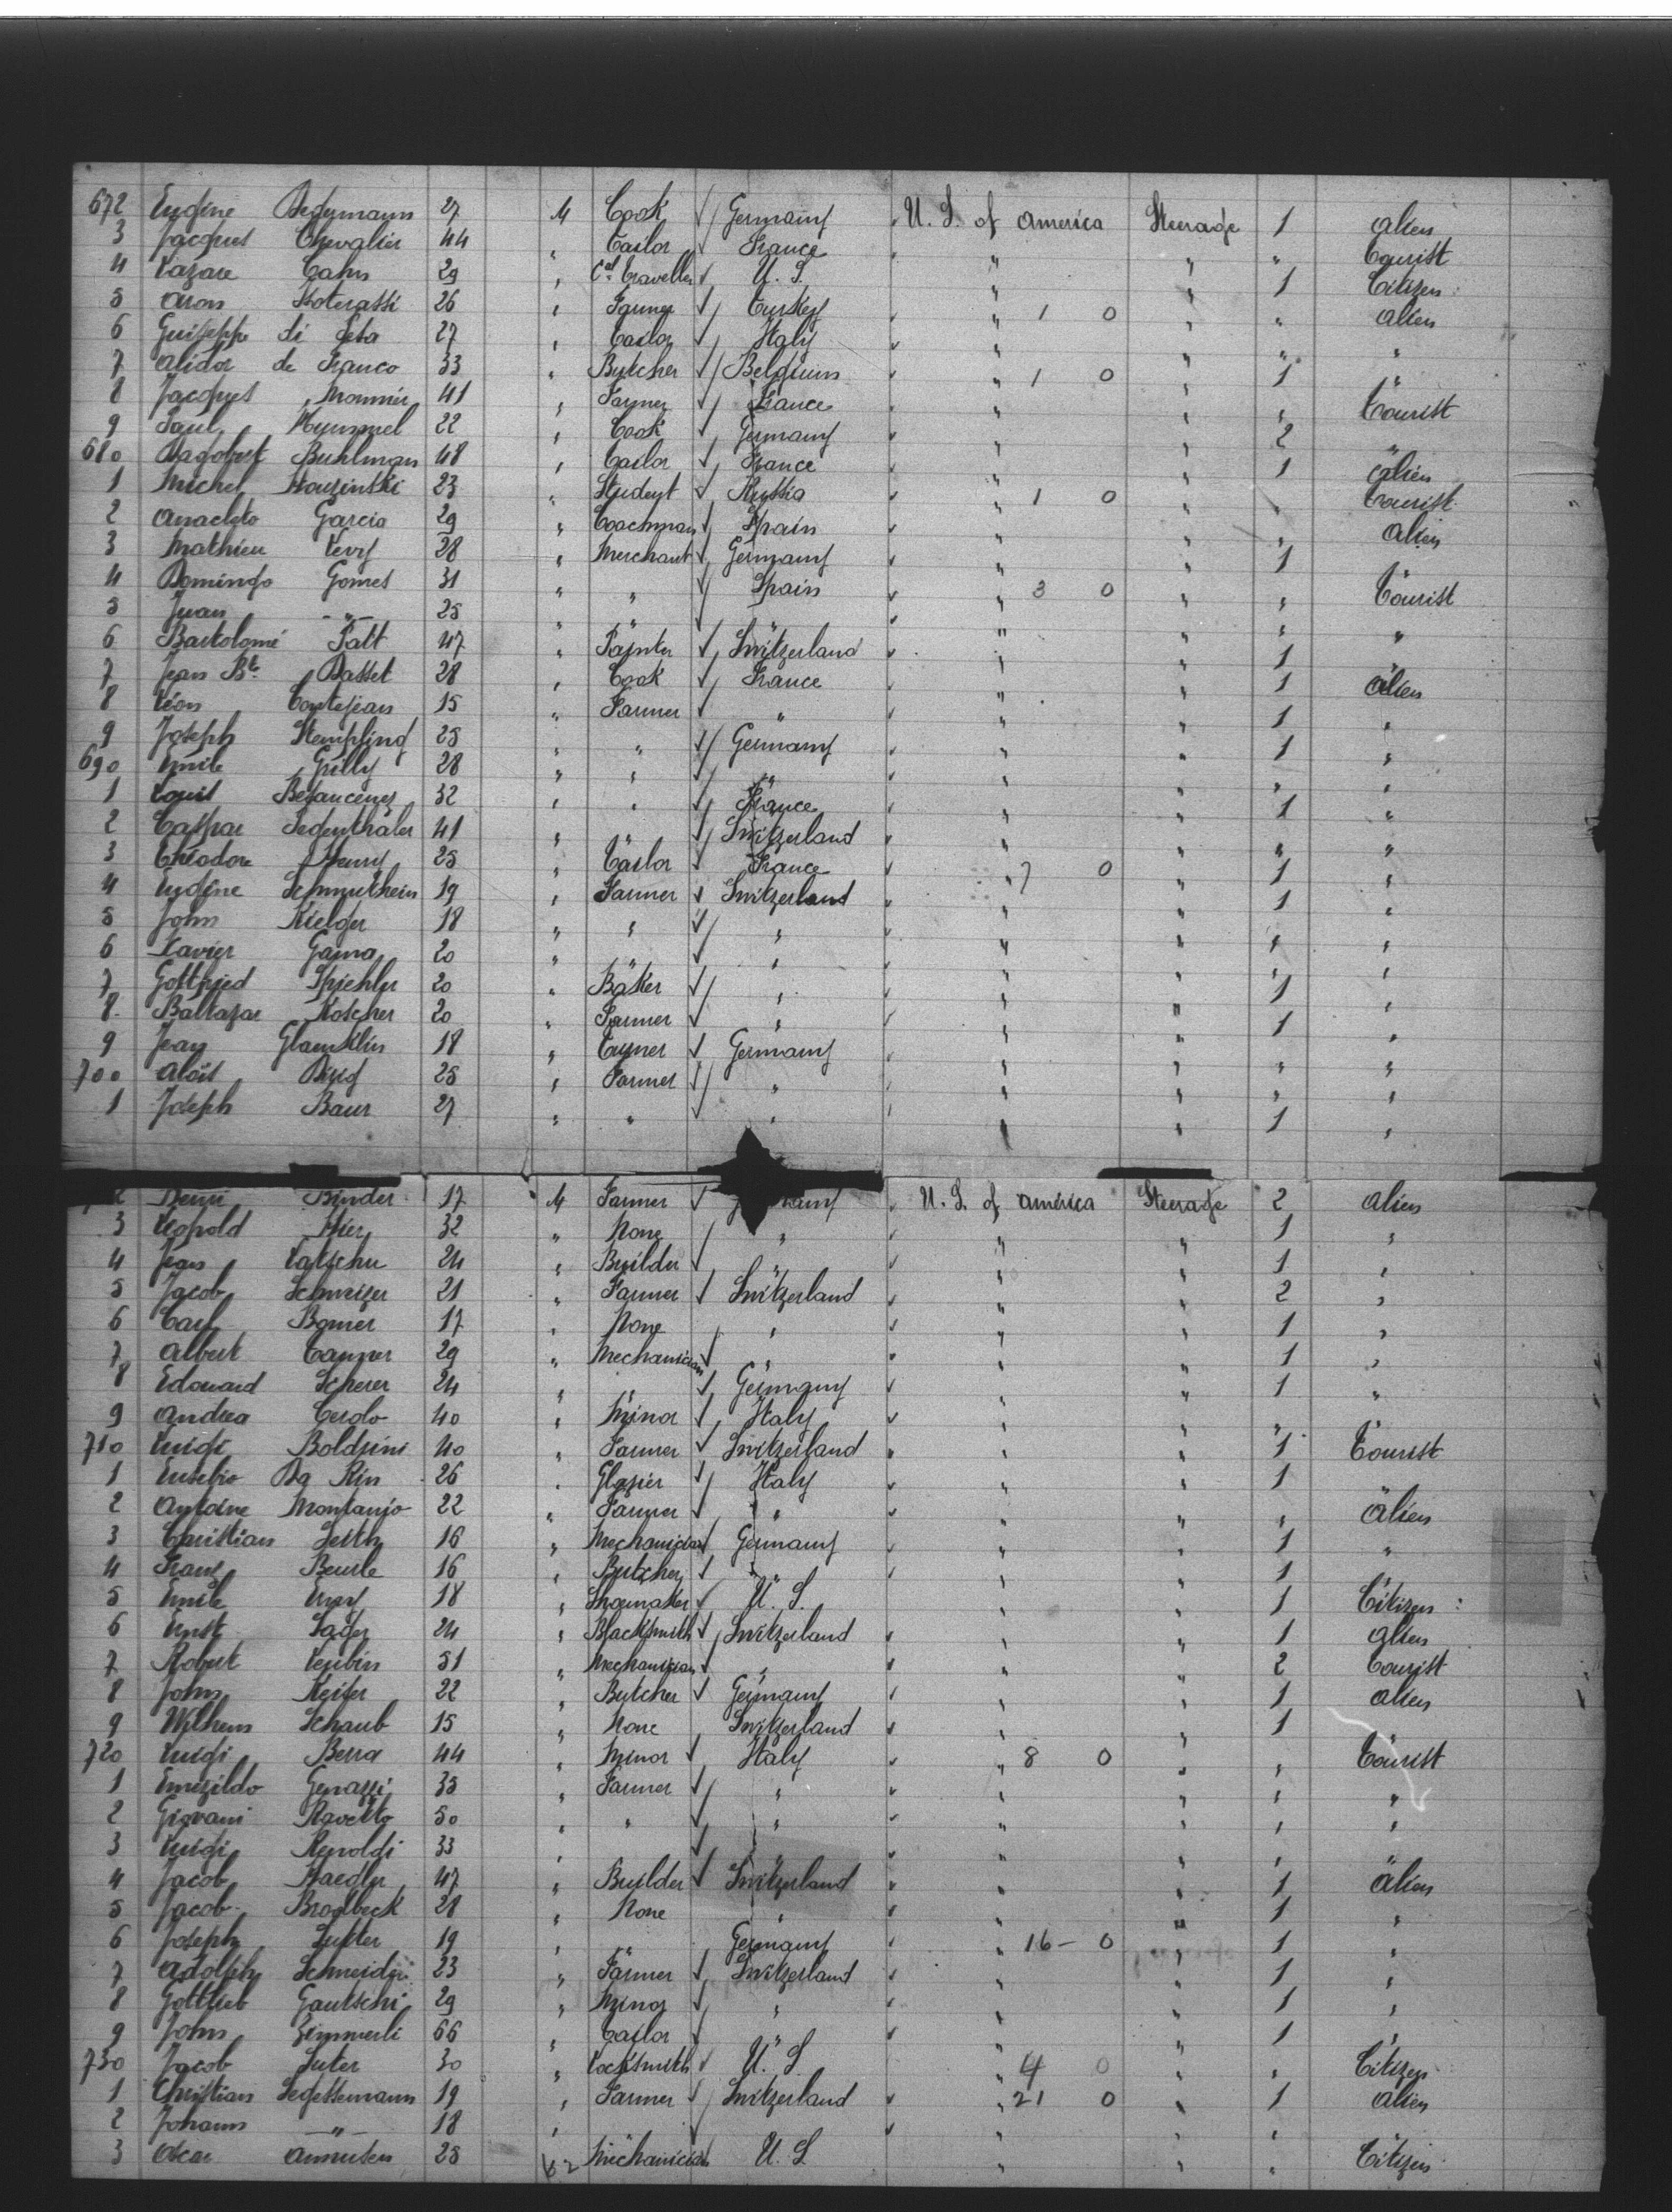 672 Eugène 27 M Cook Germany U. S. of America Steerage 1 Alien
3 Jacques Chevalier 44 " Tailor France " " " Tourist
4 Lazare Cahn 29 " Cal Traveller U. S. " " 1 Citizen
5 Aron 26 " Farmer Turkey " 1 0 " " Alien
6 Guiseppe di 27 " Tailor Italy " " " "
7 Alidor de Franco 33 " Butcher Belgium " 1 0 " 1 "
8 Jacques Monnier 41 " Farmer France " " " Tourist
9 Paul Hummel 22 " Cook Germany " " 2 "
680 Dagobert Buhlman 48 " Tailor France " " 1 Alien
1 Michel 23 " Student Russia " 1 0 " " Tourist
2 Anacleto Garcia 29 " Coachman Spain " " " Alien
3 Mathieu Levy 28 " Merchant Germany " " 1
4 Domingo Gomes 31 " " Spain " 3 0 " " Tourist
5 Juan -"- 25 " " " " " " "
6 Bartolomé Patt 47 " Painter Switzerland " " 1
7 Jean Bte Basset 28 " Cook France " " 1 Alien
8 Léon Contejean 15 " Farmer " " " 1 "
9 Joseph Stempfling 25 " " Germany " " 1 "
690 Emile Gilly 28 " " " " " " "
1 Louis Besancenez 32 " " France " " 1 "
2 Caspar 41 " " Switzerland " " " "
3 Théodore Henry 25 " Tailor France " 7 0 " 1 "
4 Eugène 19 " Farmer Switzerland " " 1 "
5 John 18 " " " " " " "
6 Xavier 20 " " " " " " "
7 Gottfried Spiehler 20 " Baker " " " 1 "
8 Baltazar Koscher 20 " Farmer " " " 1 "
9 Jean Glancklin 18 " Germany " " " "
700 Aloïs 25 " Farmer " " " " "
1 Joseph Baur 27 " " " " " 1 "
2 Henri Binder 17 M Farmer Germany U. S. of America Steerage 2 Alien
3 Leopold 32 " None " " " 1 "
4 Jean 24 " Builder " " " 1 "
5 Jacob Schweizer 21 " Farmer Switzerland " " 2 "
6 Carl 17 " None " " " 1 "
7 Albert Tanner 29 " Mechanician " " " 1 "
8 Edouard Scherer 24 " " Germany " " 1 "
9 Andrea Cerolo 40 " Minor Italy " " "
710 Luigi Boldrini 40 " Farmer Switzerland " " 1 Tourist
1 Eusebio Da Rin 26 " Glazier Italy " " 1
2 Antoine Montanjo 22 " Farmer " " " " Alien
3 Christian 16 " Mechanician Germany " " 1 "
4 Franz Beurle 16 " Butcher " " " 1 "
5 Emile 18 " Shoemaker U. S. " " 1 Citizen
6 Ernst 24 " Blacksmith Switzerland " " 1 Alien
7 Robert Leubin 51 " Mechanician " " " 2 Tourist
8 John Keifer 22 " Butcher Germany " " 1 Alien
9 Wilhem Schaub 15 " None Switzerland " " 1
720 Luigi Berra 44 " Minor Italy " 8 0 " " Tourist
1 Emezildo Genazzi 35 " Farmer " " " " "
2 Giovani Ravetto 50 " " " " " " "
3 Luigi Renoldi 33 " " " " " "
4 Jacob Haedler 47 " Builder Switzerland " " 1 Alien
5 Jacob Brodbeck 28 " None " " " 1 "
6 Joseph Sutter 19 " " Germany " 16 - 0 " 1 "
7 Adolph Schneider 23 " Farmer Switzerland " " 1 "
8 Gottlieb Gautschi 29 " Minor " " " 1 "
9 John Zimmerli 66 " Tailor " " " 1 "
730 Jacob Suter 30 " Locksmith U. S. " 4 0 " " Citizen
1 Christian Segessemann 19 " Farmer Switzerland " 21 0 " 1 Alien
2 Johann -"- 18 " " " "
3 Oscar 25 Mechanician U. S. " " " Citizen